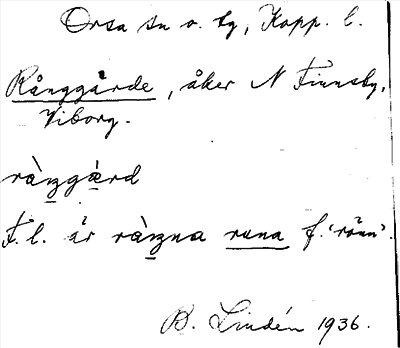 Orsa sn o. by, Kopp. l.
Rånggårde, åker N Finnsby,
Viborg.
rànggård
F. l. är rànna runa f. 'rönn'.
B. Lindén 1936.